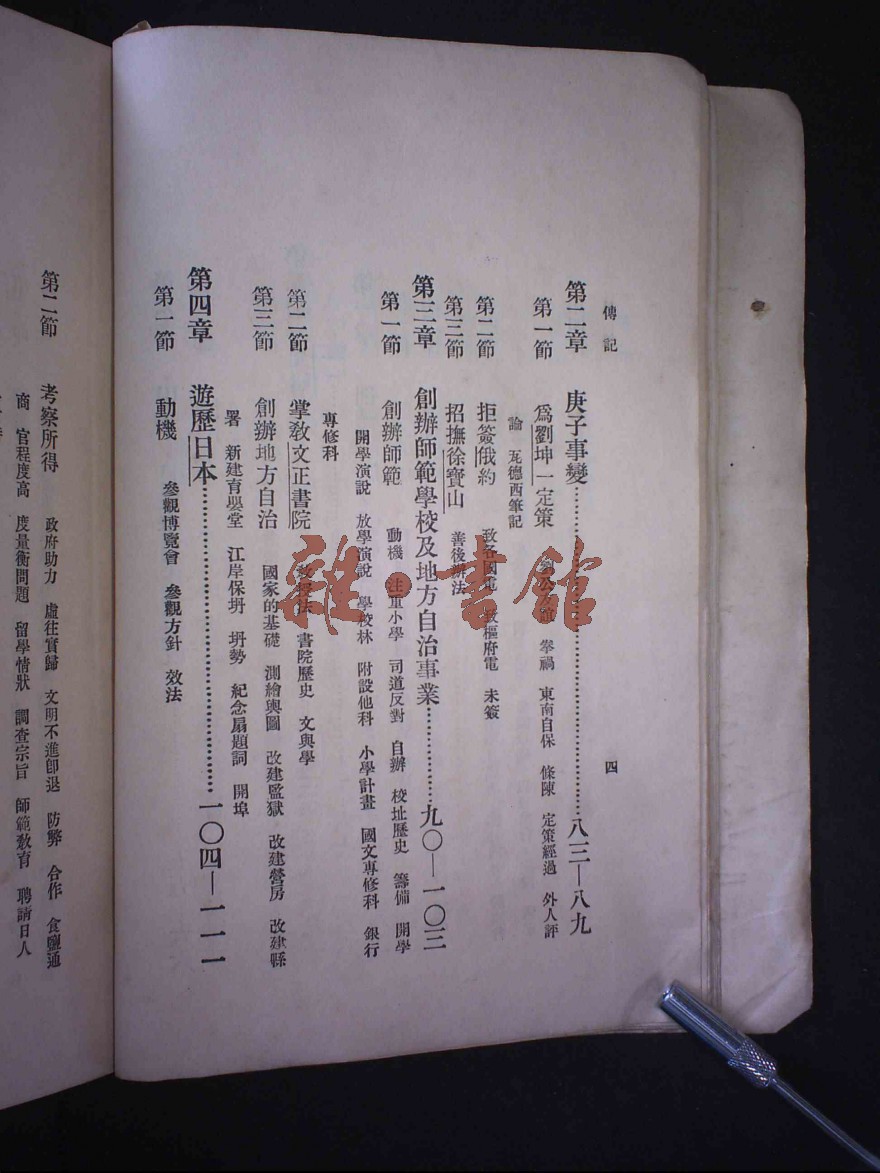 傳記 四
第二章 庚子事變……八三—八九
第一節 爲劉坤一定策 劉公 拳禍 東南自保 條陳 定策經過 外人評
論 瓦德西筆記
第二節 拒簽俄約 致各國電 致樞府電 未簽
第三節 招撫徐寶山 善後辦法
第三章 創辦師範學校及地方自治事業……九〇—一〇三
第一節 創辦師範 動機 注重小學 司道反對 自辦 校址歷史 籌備 開學
開學演說 放學演說 學校林 附設他科 小學計畫 國文專修科 銀行
專修科
第二節 掌敎文正書院 敎授法 書院歷史 文與學
第三節 創辦地方自治 國家的基礎 測繪輿圖 改建監獄 改建營房 改建縣
署 新建育嬰堂 江岸保坍 坍勢 紀念扇題詞 開埠
第四章 遊歷日本……一〇四—一一一
第一節 動機 參觀博覽會 參觀方針 效法
第二節 考察所得 政府助力 虛往實歸 文明不進卽退 防弊 合作 食鹽通
商 官程度高 度量衡問題 留學情狀 調查宗旨 師範敎育 聘請日人
雜·書館